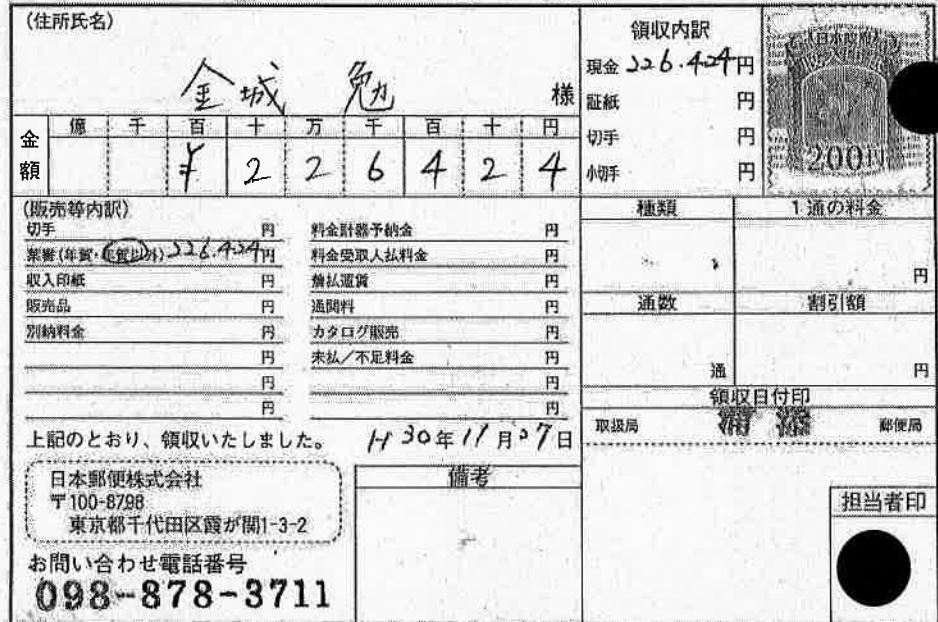 (住所氏名)
金城 勉 様
金額
億 千 百 十 万 千 百 十 円
¥ 2 2 6 4 2 4
領収内訳
現金 226.424円
証紙 円
切手 円
小切手 円
日本政府
200円
(販売等内訳)
切手 円
葉書(年賀・年賀以外) 226.424円
収入印紙 円
販売品 円
別納料金 円
円
円
円
料金計器予納金 円
料金受取人払料金 円
後払運賃 円
通関料 円
カタログ販売 円
未払/不足料金 円
円
円
種類 1通の料金
円
通数 割引額
通 円
上記のとおり、領収いたしました。 H30年11月27日
領収日付印
取扱局 郵便局
日本郵便株式会社
〒100-8798
東京都千代田区霞が関1-3-2
備考
担当者印
お問い合わせ電話番号
098-878-3711